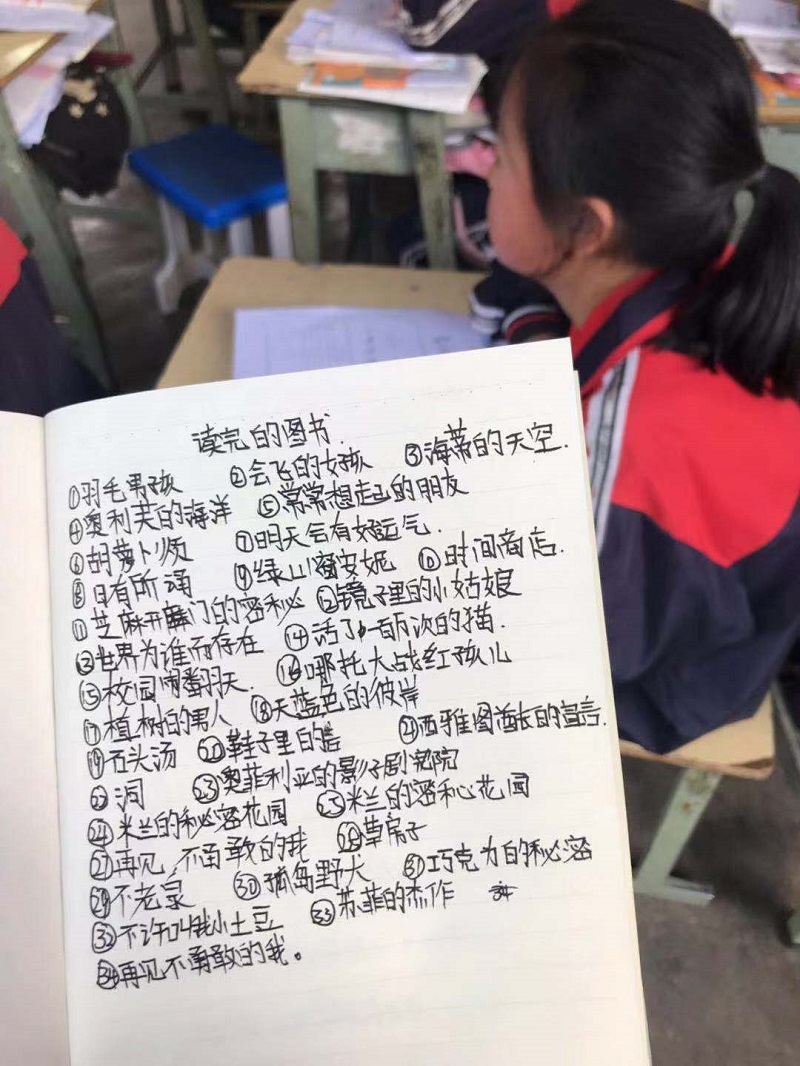 读完的图书.
①羽毛男孩 ②会飞的女孩 ③海蒂的天空.
④奥利芙的海洋 ⑤常常想起的朋友
⑥胡萝卜须 ⑦明天会有好运气.
⑧日有所诵 ⑨绿山墙安妮 ⑩时间商店.
⑪芝麻开门的秘密 ⑫镜子里的小姑娘
⑬世界为谁而存在 ⑭活了一百万次的猫.
⑮校园闹翻天. ⑯哪托大战红孩儿
⑰植树的男人 ⑱天蓝色的彼岸
⑲石头汤 鞋子里的盐 ㉑西雅图酋长的宣言.
㉒洞 ㉓奥菲利亚的影子剧院
㉔米兰的秘密花园 ㉕米兰的秘密花园
㉗再见,不勇敢的我 草房子
㉙不老泉 ㉚孤岛野犬 ㉛巧克力的秘密
㉜不许叫我小土豆 ㉝苏菲的杰作
㉞再见不勇敢的我。